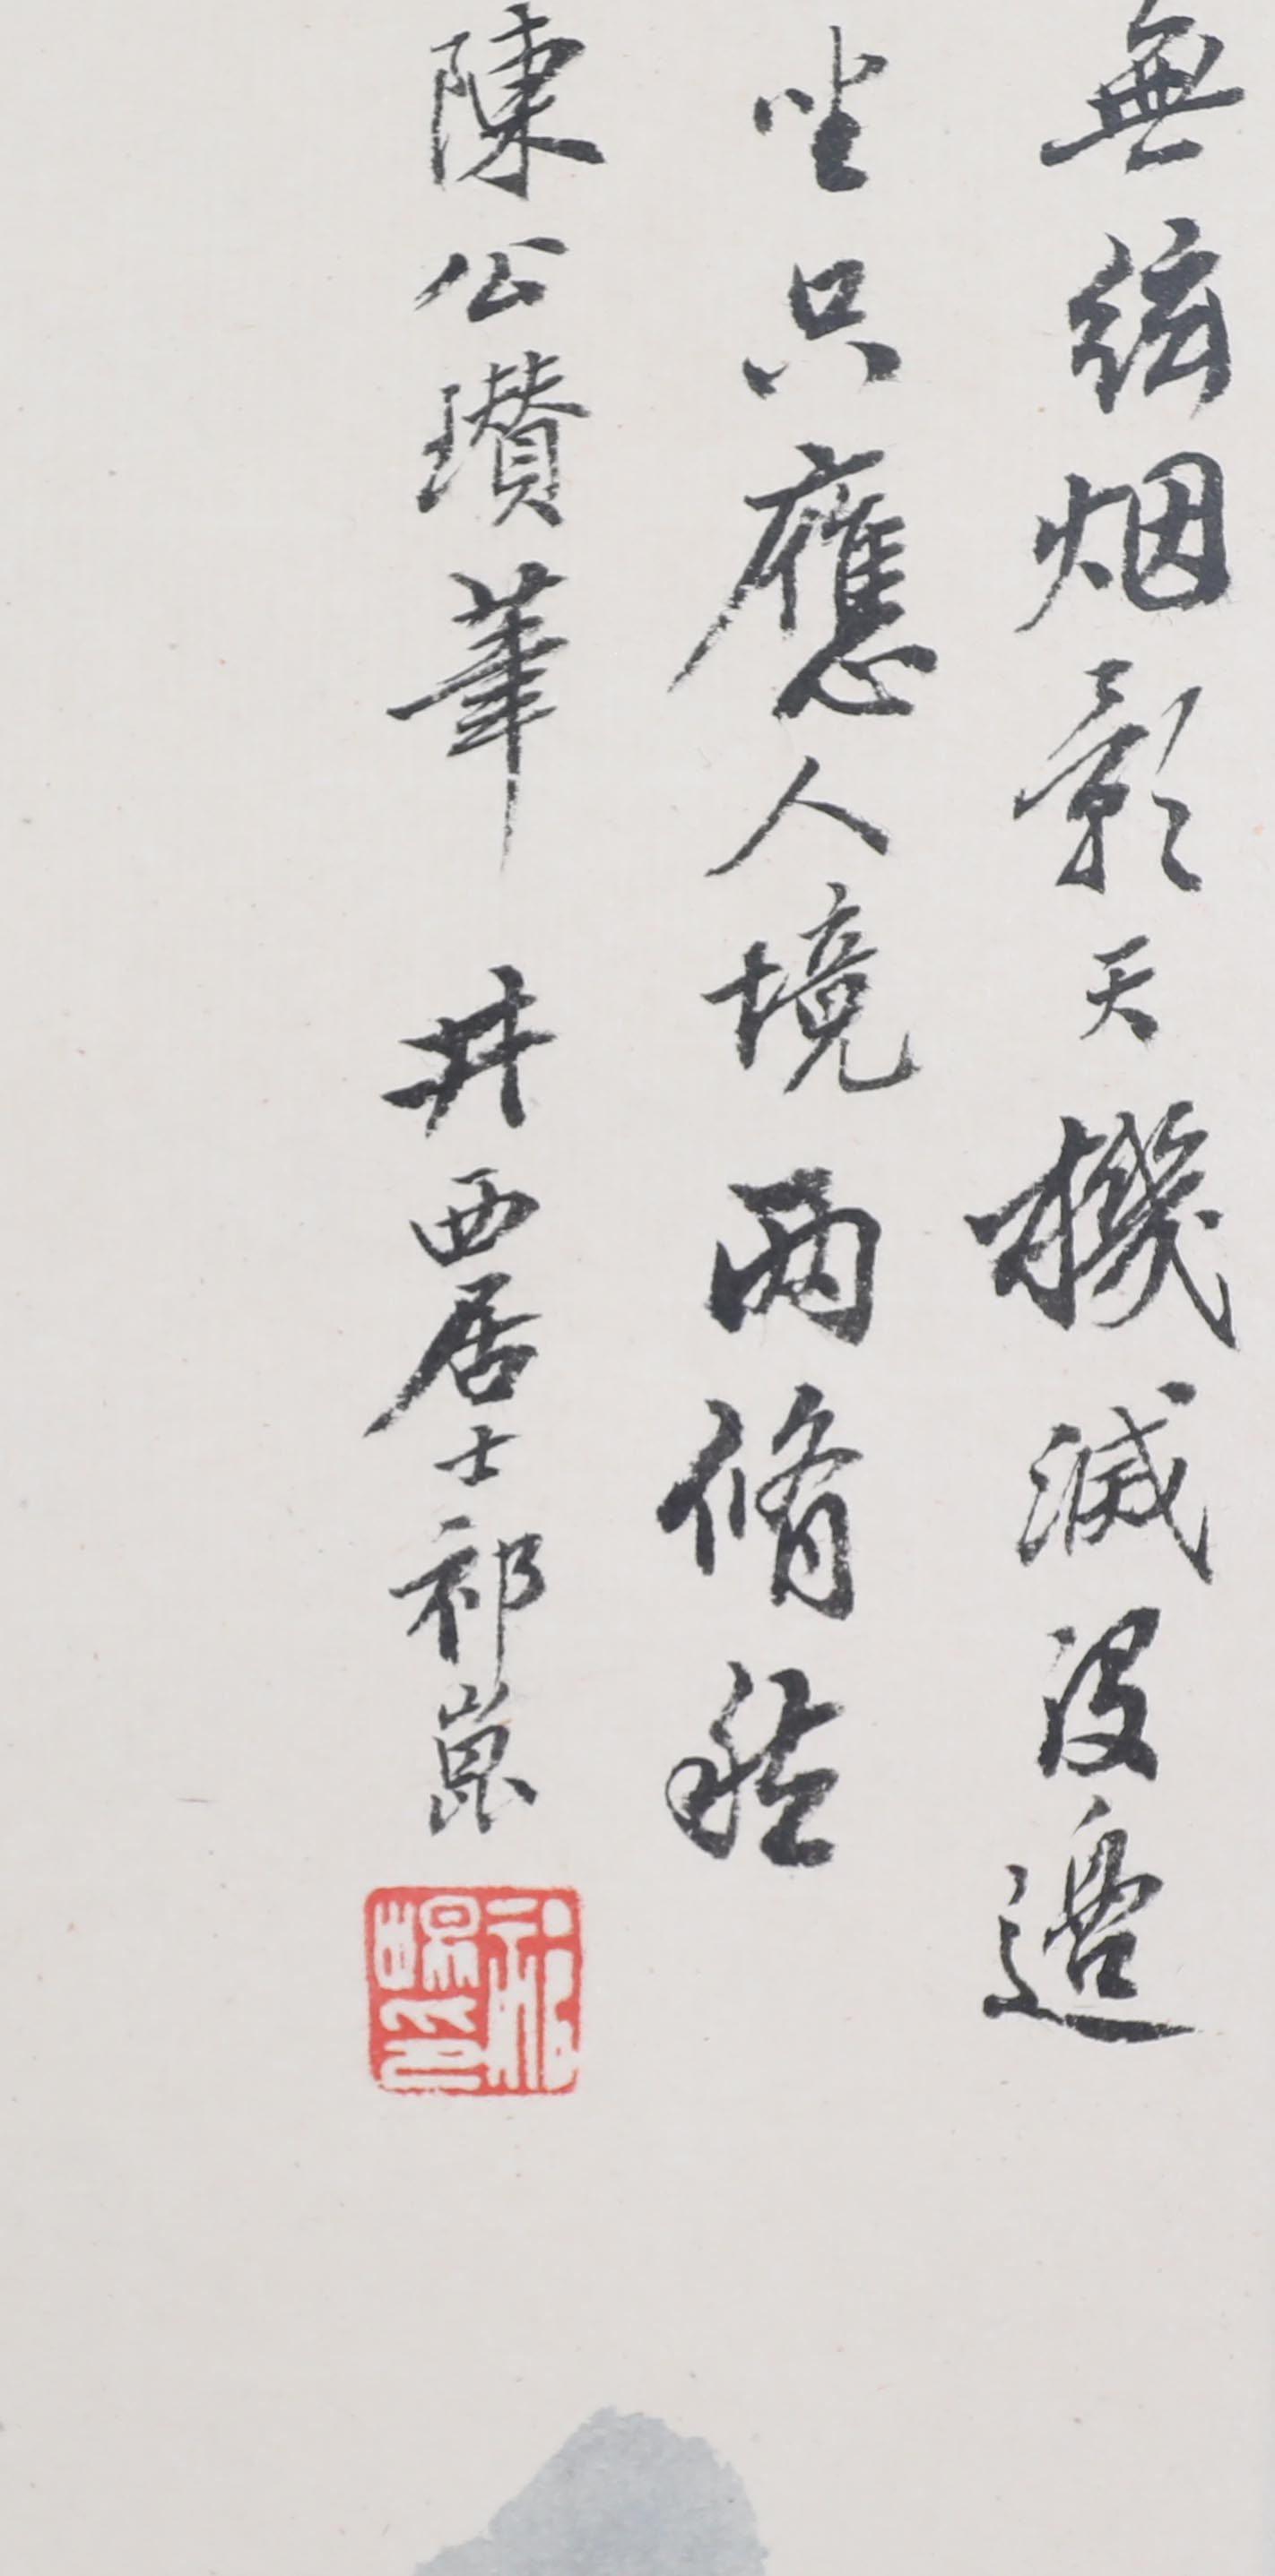 無絃烟影天機滅沒邊
坐只應人境兩翛然
陳公瓚筆 井西居士祁崑
祁崑印